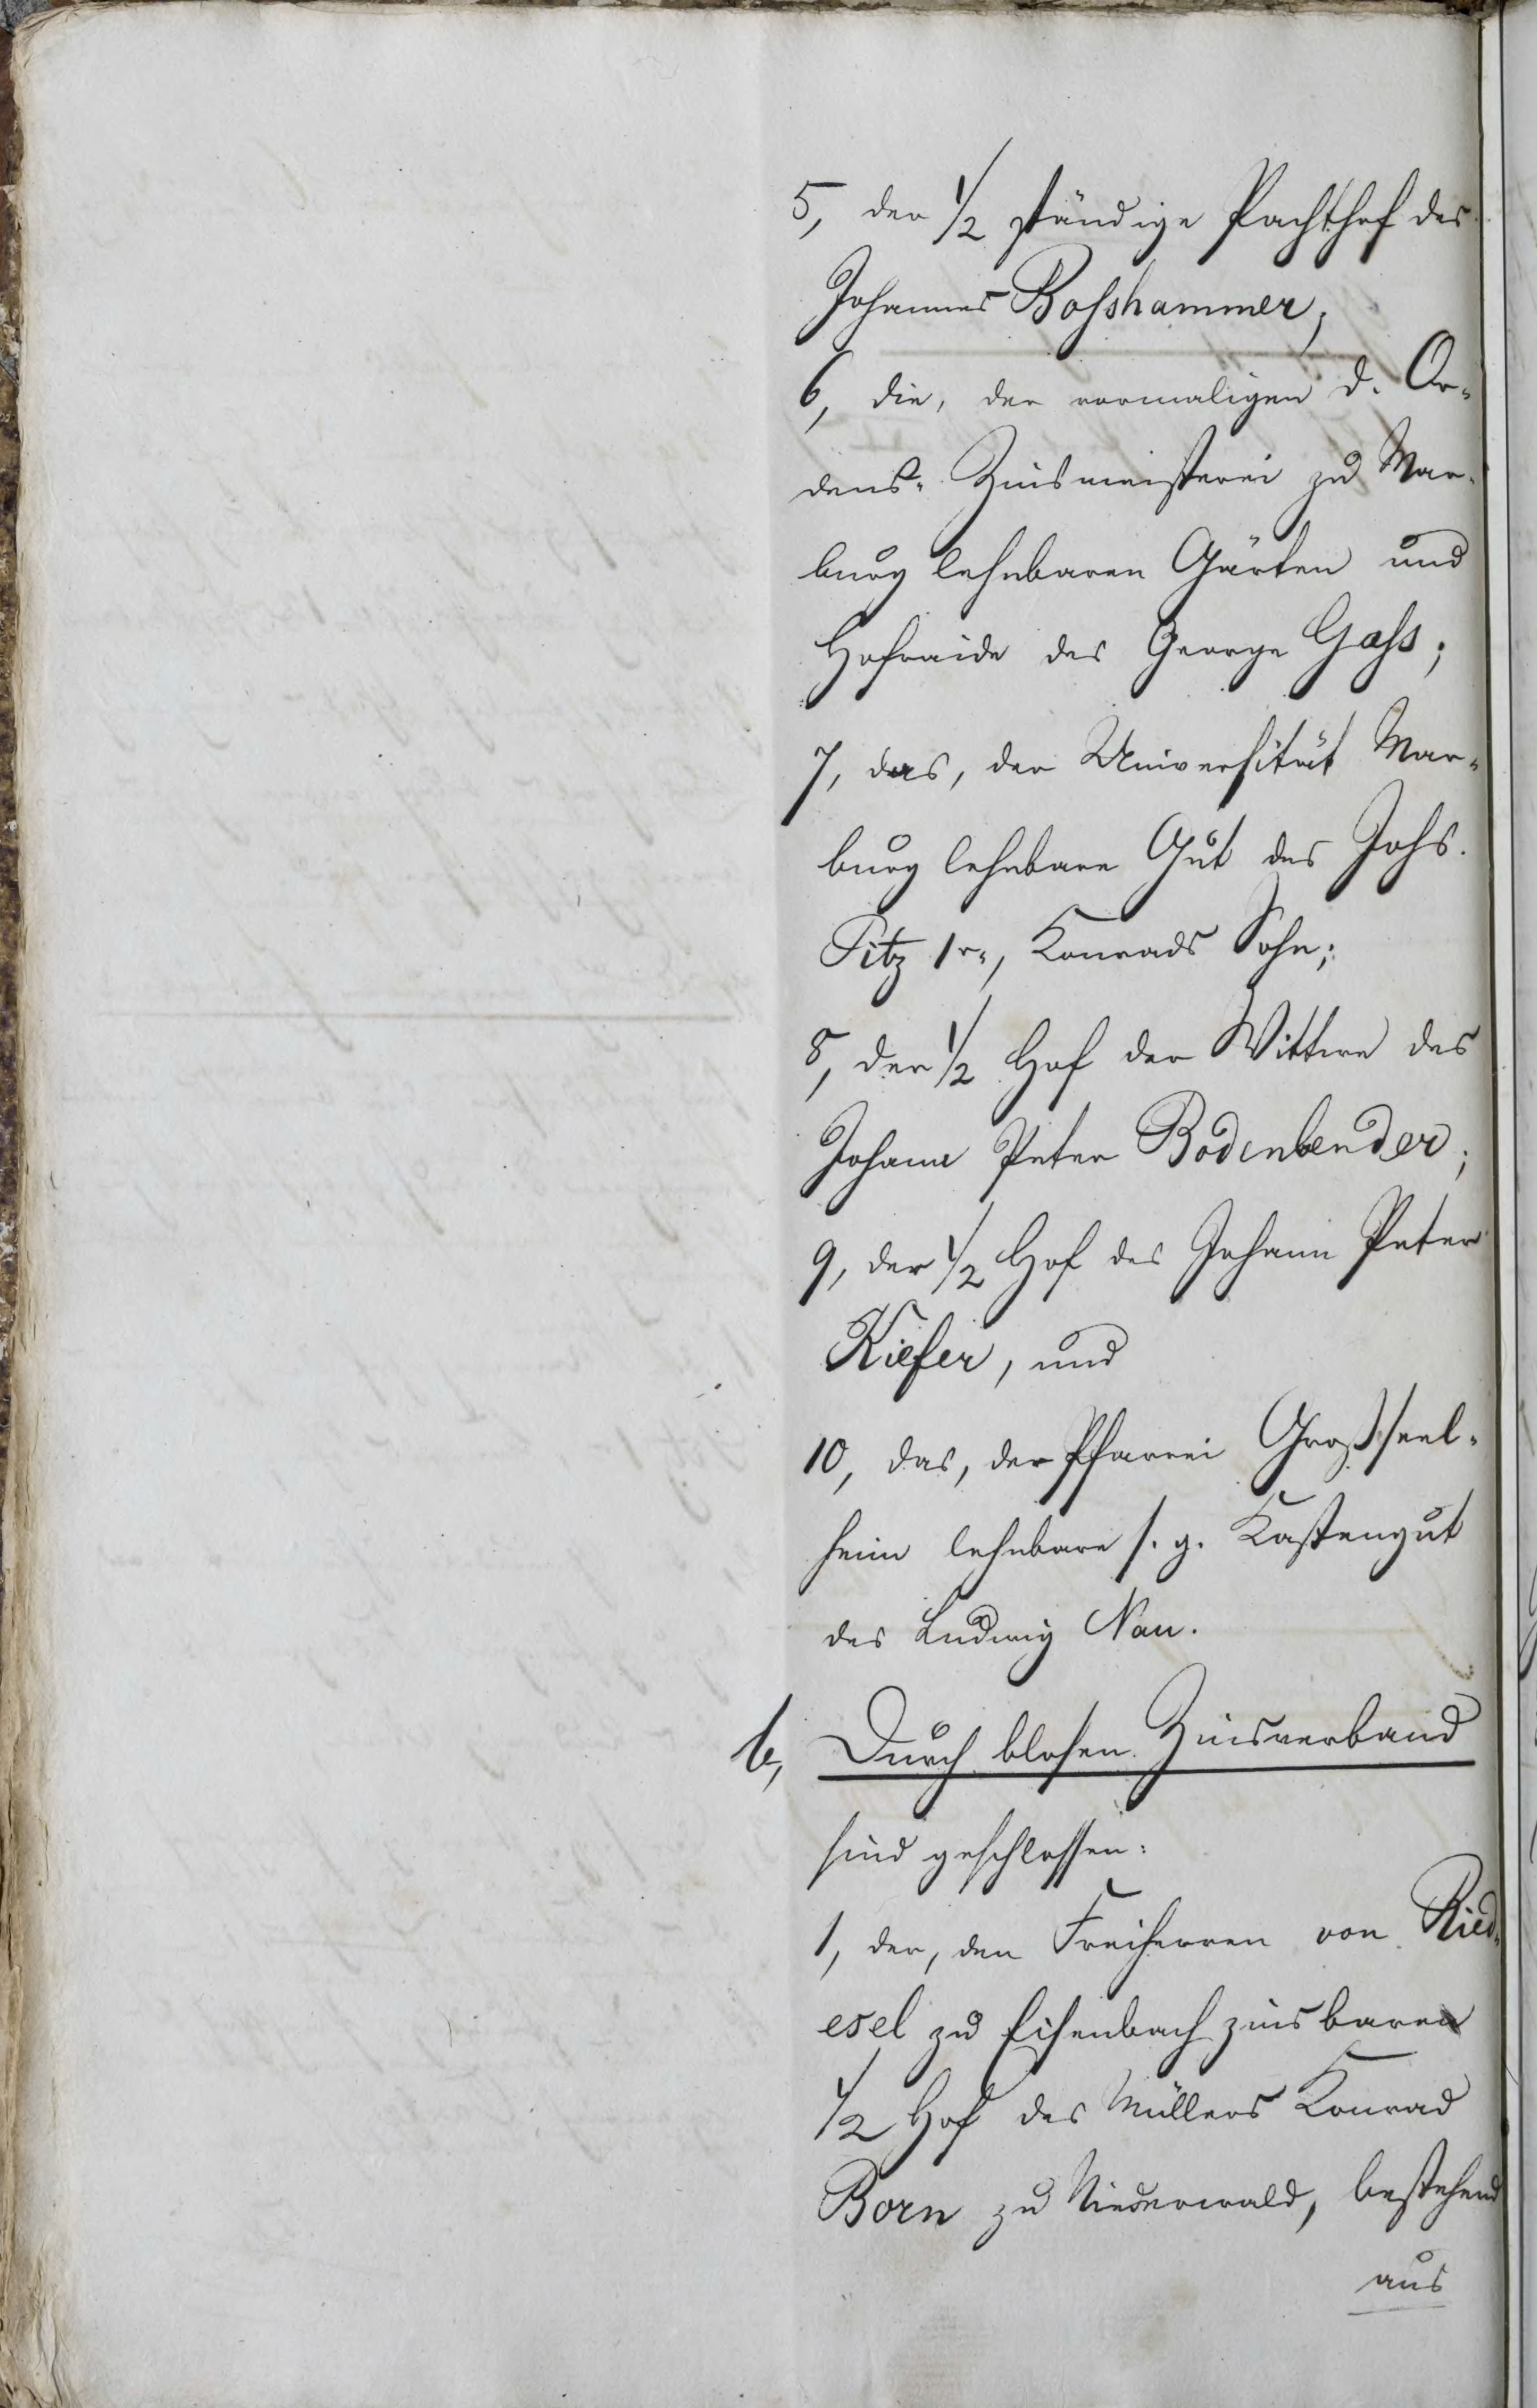 5, der 1/2 ständige Pachthof des
Johannes Bosshammer;
6, die, der vormaligen d. Or-
dens-Zinsmeisterei zu Mar-
burg lehnbaren Gärten und
Hofraide des George Gass;
7, das, der Universität Mar-
burg lehnbare Gut des Johs.
Pitz 1r, Konrads Sohn;
8, der 1/2 Hof der Wittwe des
Johann Peter Bodenbender;
9, der 1/2 Hof des Johann Peter
Kiefer, und
10, das, der Pfarrei Großseel-
heim lehnbare s. g. Kastengut
des Ludwig Nau.
b, Durch blosen Zinsverband
sind geschlossen:
1, der, den Freiherren von Ried-
esel zu Eisenbach zinsbaren
1/2 Hof des Müllers Konrad
Born zu Niederwald, bestehend
aus